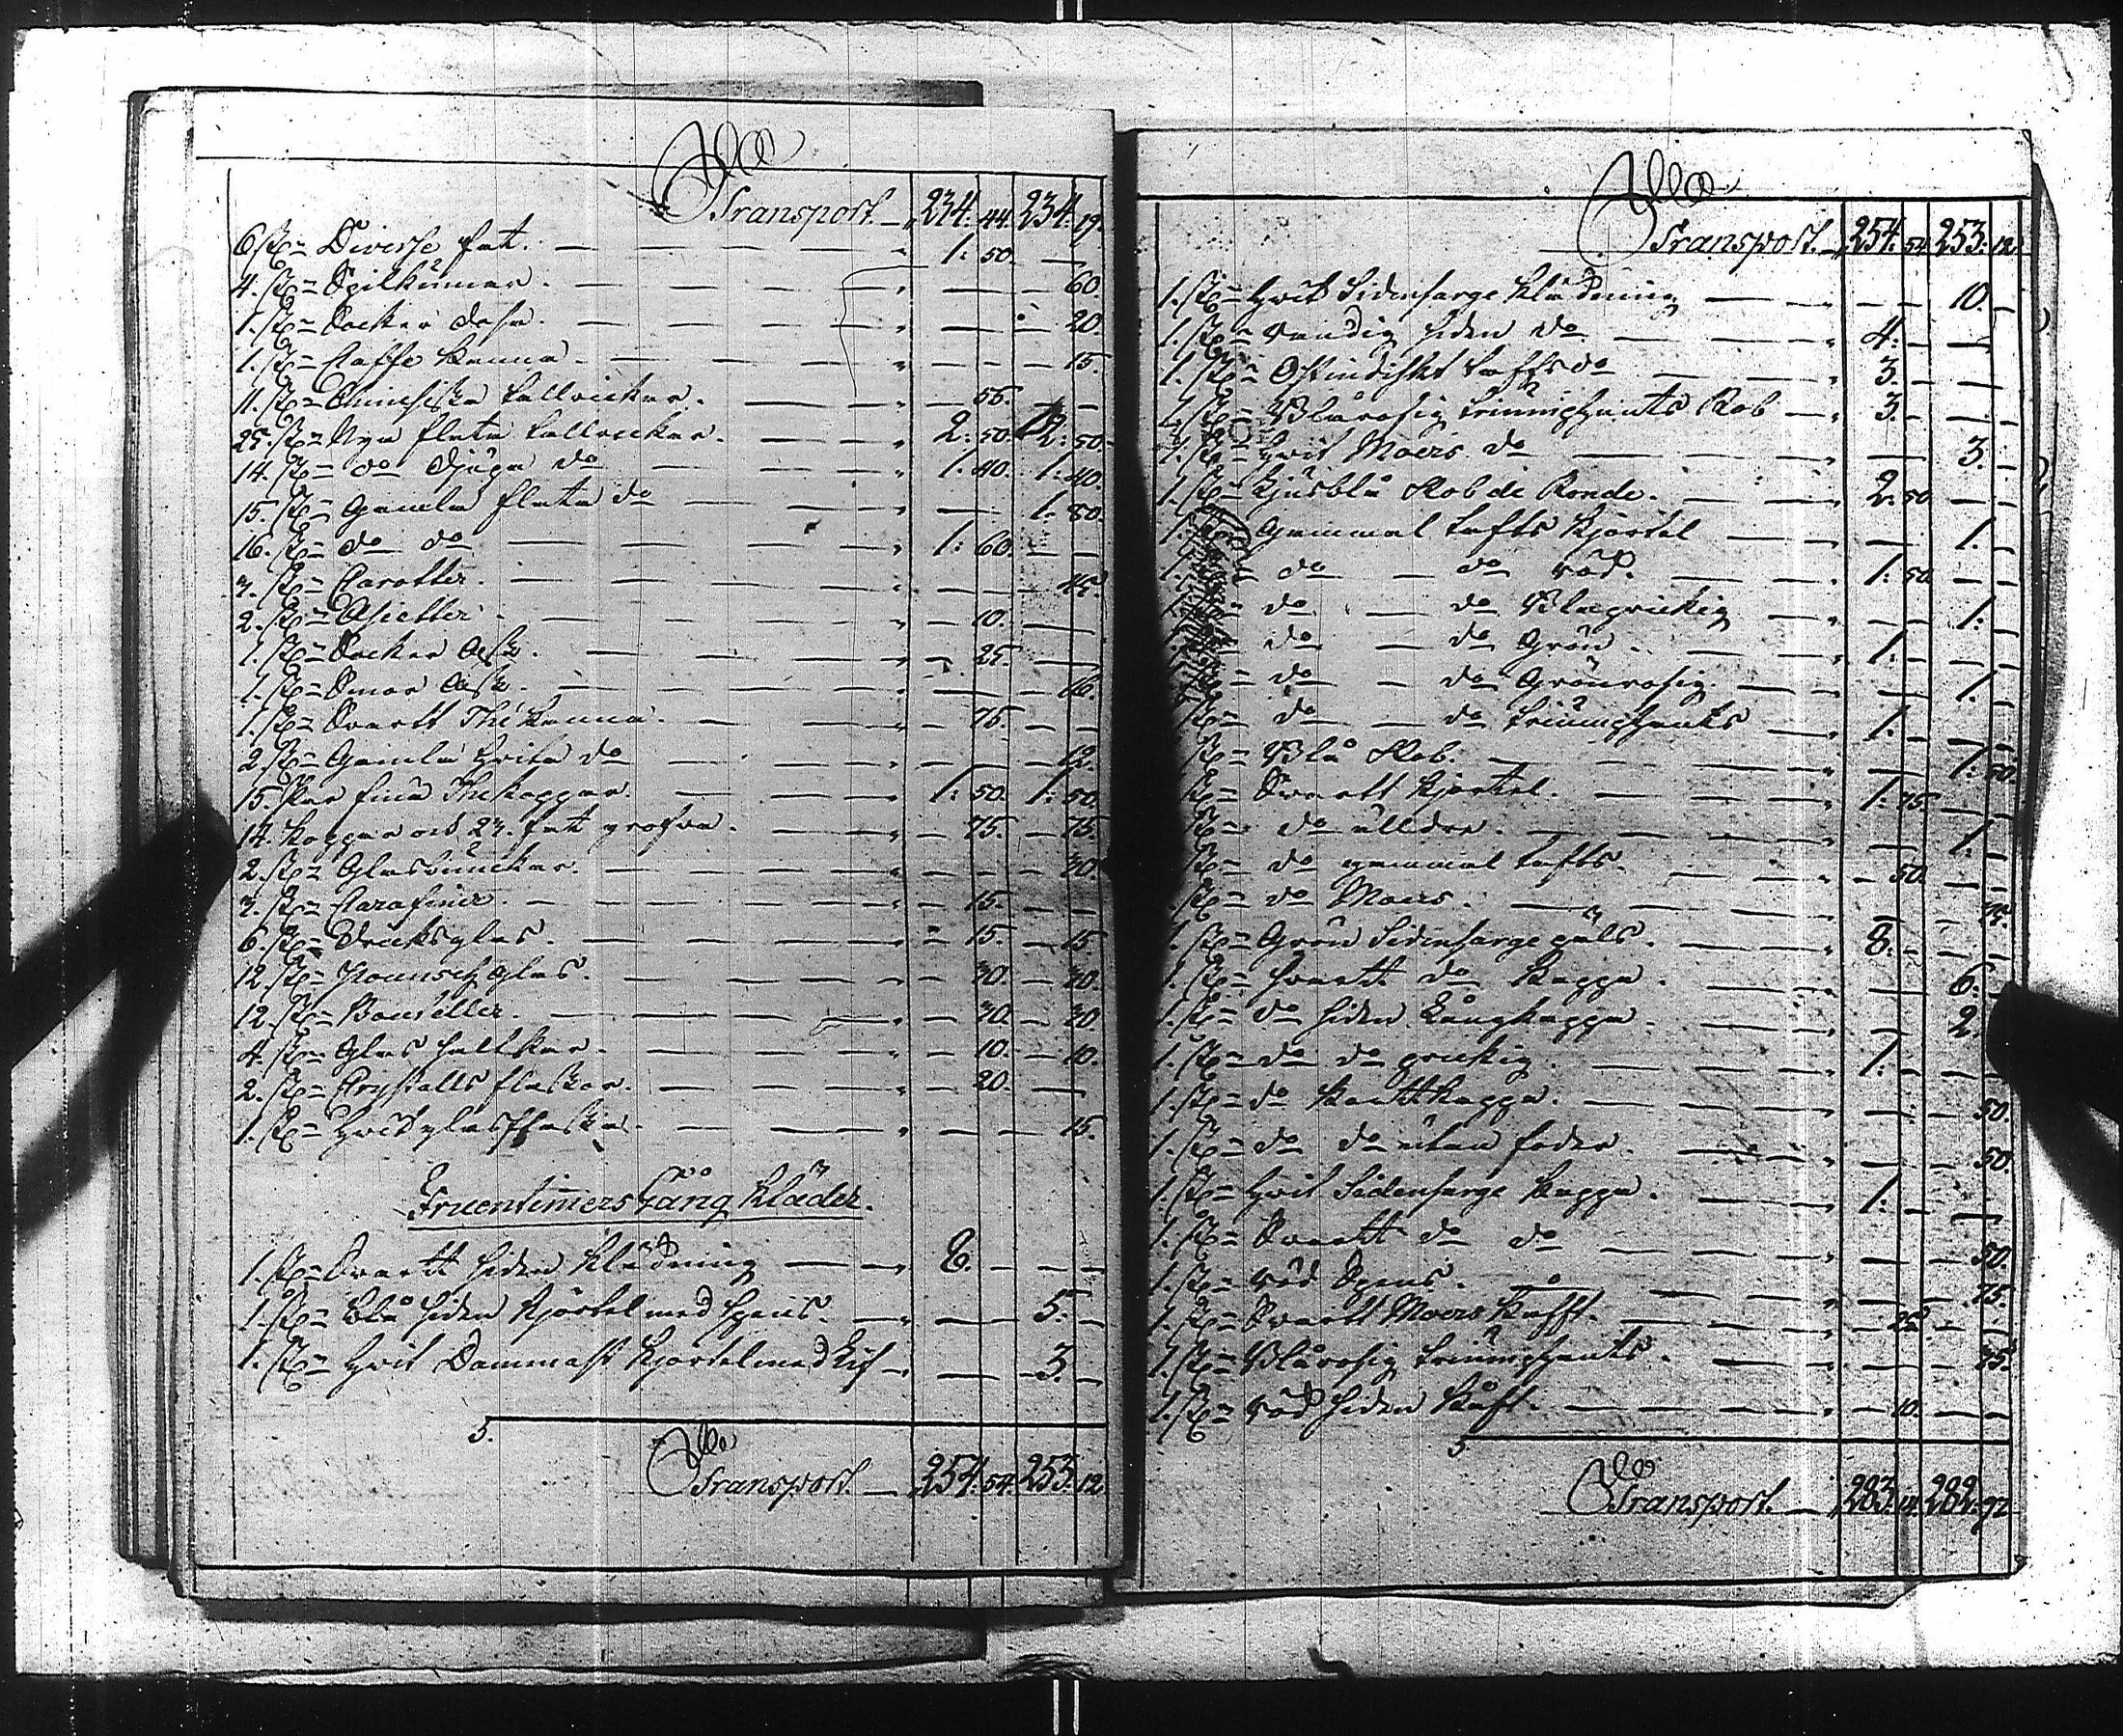 Transport. 234. 44. 234. 19.
6. st= Diverse fat. 1: 50. —
4. st= Spilkumar. — — 60.
1. st= Socker dosa. — — 20.
1. st= Caffe kanna. — — 15.
11. st= Chinesiska tallrickar. — 55. —
25. st= Nya flata tallrickar. 2: 50. 2: 50.
14. st= do djupa do 1: 40. 1: 40.
15. st= Gamla flata do — — 1: 80.
16. st= do do 1: 60. —
3. st= Carotter. — — 45.
2. st= Assietter. — 10. —
1. st= Socker Ask. — 25. —
1. st= Smör Ask. — — 16.
1. st= Svartt The kanna. — 75. —
2. st= Gamla hvita do — — 12.
15. Par fina The koppar. 1: 50. 1: 50.
14. koppar och 23. fat grofva. — 75. — 75.
2. st= Glasbunckar. — — 30.
3. st= Carafiner. — 15. —
6. st= Dricksglas. — 15. — 15.
12. st= Pounsch glas. — 30. — 30.
12. st= Bouteller. — 30. — 30.
4. st= Glas saltkar. — 10. — 10.
2. st= Crystalls flaskor. — 20. —
1. st= Hvit glasflaska. — — 15.
Fruentimers Gång Kläder.
1. st= Svartt siden Klädning 8. — —
1. st= Blå siden Kjortel med spens. — — 5. —
1. st= Hvit Dammast Kjortel med — — 3. —
5.
Transport. 254. 54. 253. 12.
Transport. 254. 54. 253. 12.
1. st= Hvit Sidensarge klädning — — 10. —
1. st= randig siden do 4. — —
1. st= Ostindiskt tafts do 3. — —
1. st= Blårosig triumphants Rob 3. — —
1. st= Hvit Moers do — — 3. —
1. st= Ljusblå Rob de Ronde. 2. 50. —
1. st= Gammal tafts Kjortel — — 1. —
1. st= do — do röd. 1. 50. —
do — do Blåprickig — — 1. —
do — do Grön. 1. — —
do — do Grönrosig. — — 1. —
st= do — do triumphants 1. — —
st= Blå Rob. — — 1. 50.
st= Svartt Kjortel. 1. 75. —
st= do ulldra. — — 1. —
st= do gammal tafts. — 50. —
st= do Moers. — — 75.
1. st= Grön Sidensarge päls. 8. — —
1. st= Svartt do kappa. — — 6. —
1. st= do siden Långkappa. — — 2.
1. st= do do prickig. 1. — —
1. st= do kortkappa. — — 50.
1. st= do do utan foder. — — 50.
1. st= Hvit Sidensarge kappa. 1. — —
1. st= Svartt do do — — 50.
1. st= röd Spens. — — 75.
1. st= Svartt Moers kofft. — 25. —
1. st= Blårosig triumphants. — — 75.
1. st= röd siden koft. — 10. —
5.
Transport. 283. 14. 282. 92.